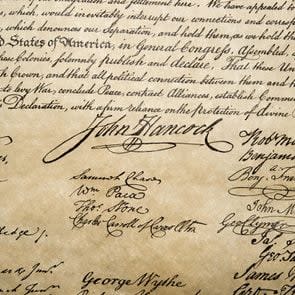 migration and settlement here. We have appealed
which, would inevitably interrupt our connections and corresp
, which denounces our Separation, and hold them, as we hold the
d States of America, in General Congress, Assembled,
these Colonies, solemnly publish and declare, That these Un
h Crown, and that all political connection between them and th
to levy War, conclude Peace, contract Alliances, establish Commer
s Declaration, with a firm reliance on the Protection of Divine
John Hancock
Rob Mo
Benjamin
Samuel Chase
Wm Paca
Thos. Stone
Charles Carroll of Carrollton
John M
Geo Clymer
Ja.
Geo. Ta
James
George Wythe